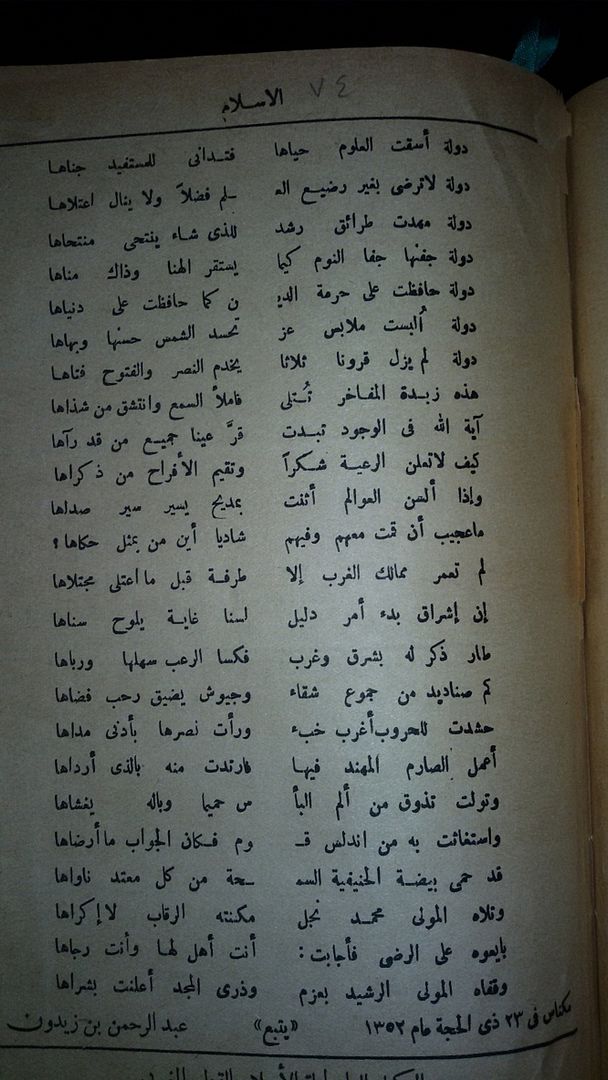 الاسلام ٧٤
دولة أسقت العلوم حياها فتدانى للمستفيد جناها
دولة لاترضى بغير رضيع العـ ـلم فضلاً ولا ينال اعتلاها
دولة مهدت طرائق رشد للذى شاء ينتحى منتحاها
دولة جفنها جفا النوم كيما يستقر الهنا وذاك مناها
دولة حافظت على حرمة الديـ ن كما حافظت على دنياها
دولة أُلبست ملابس عز تحسد الشمس حسنها وبهاها
دولة لم يزل قرونا ثلاثا يخدم النصر والفتوح فتاها
هذه زبدة المفاخر تُتلى فاملأ السمع وانتشق من شذاها
آية الله فى الوجود تبدت قرَّ عينا جميع من قد رآها
كيف لاتعلن الرعية شكراً وتقيم الأفراح من ذكراها
وإذا ألسن العوالم أثنت بمديح يسير سير صداها
ماعجيب أن قمت معهم وفيهم شاديا أين من بمثل حكاها؟
لم تعمر ممالك الغرب إلا طرفة قبل ما اعتلى مجتلاها
إن إشراق بدء أمر دليل لسنا غاية يلوح سناها
طار ذكر له بشرق وغرب فكسا الرعب سهلها ورباها
كم صناديد من جموع شقاء وجيوش يضيق رحب فضاها
حشدت للحروب أغرب خبء ورأت نصرها بأدنى مداها
أعمل الصارم المهند فيها فارتدت منه بالذى أرداها
وتولت تذوق من ألم البأ س حميما وباله يغشاها
واستغاثت به من اندلس قـ وم فكان الجواب ما أرضاها
قد حمى بيضة الحنيفية السمـ ـحة من كل معتد ناواها
وتلاه المولى محمد نجل مكنته الرقاب لا إكراها
بايعوه على الرضى فأجابت: أنت أهل لها وأنت رجاها
وقفاه المولى الرشيد بعزم وذرى المجد أعلنت بشراها
مكناس فى ٢٣ ذى الحجة عام ١٣٥٢ «يتبع» عبد الرحمن بن زيدون